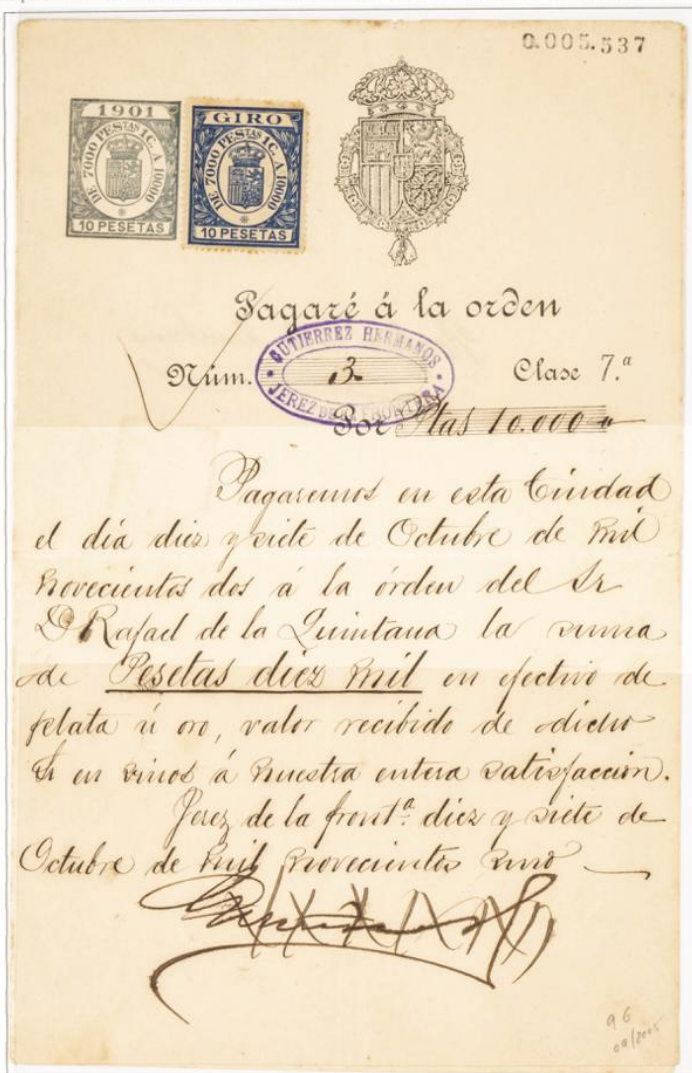 0.005.537
1901
DE 7000 PESTAS 1C. A 10000
10 PESETAS
GIRO
DE 7000 PESTAS 1C. A 10000
10 PESETAS
Pagaré á la orden
GUTIERREZ HERMANOS
JEREZ DE LA FRONTERA
Núm. 3. Clase 7.ª
Por Ptas 10.000
Pagaremos en esta Ciudad
el día diez y siete de Octubre de mil
novecientos dos á la órden del Sr
D Rafael de la Quintana la suma
de Pesetas diez mil en efectivo de
plata ú oro, valor recibido de dicho
Sr en vinos á nuestra entera satisfaccion.
Jerez de la front.ª diez y siete de
Octubre de mil novecientos uno